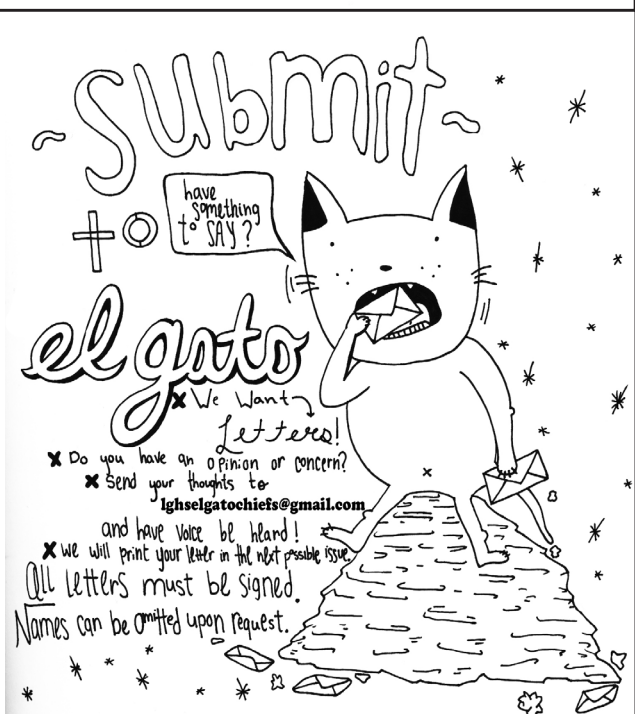 ~Submit~
to
have
something
to SAY?
el gato
x We Want
Letters!
x Do you have an opinion or concern?
x Send your thoughts to
lghselgatochiefs@gmail.com
and have voice be heard!
x we will print your letter in the next possible issue.
All letters must be signed.
Names can be omitted upon request.